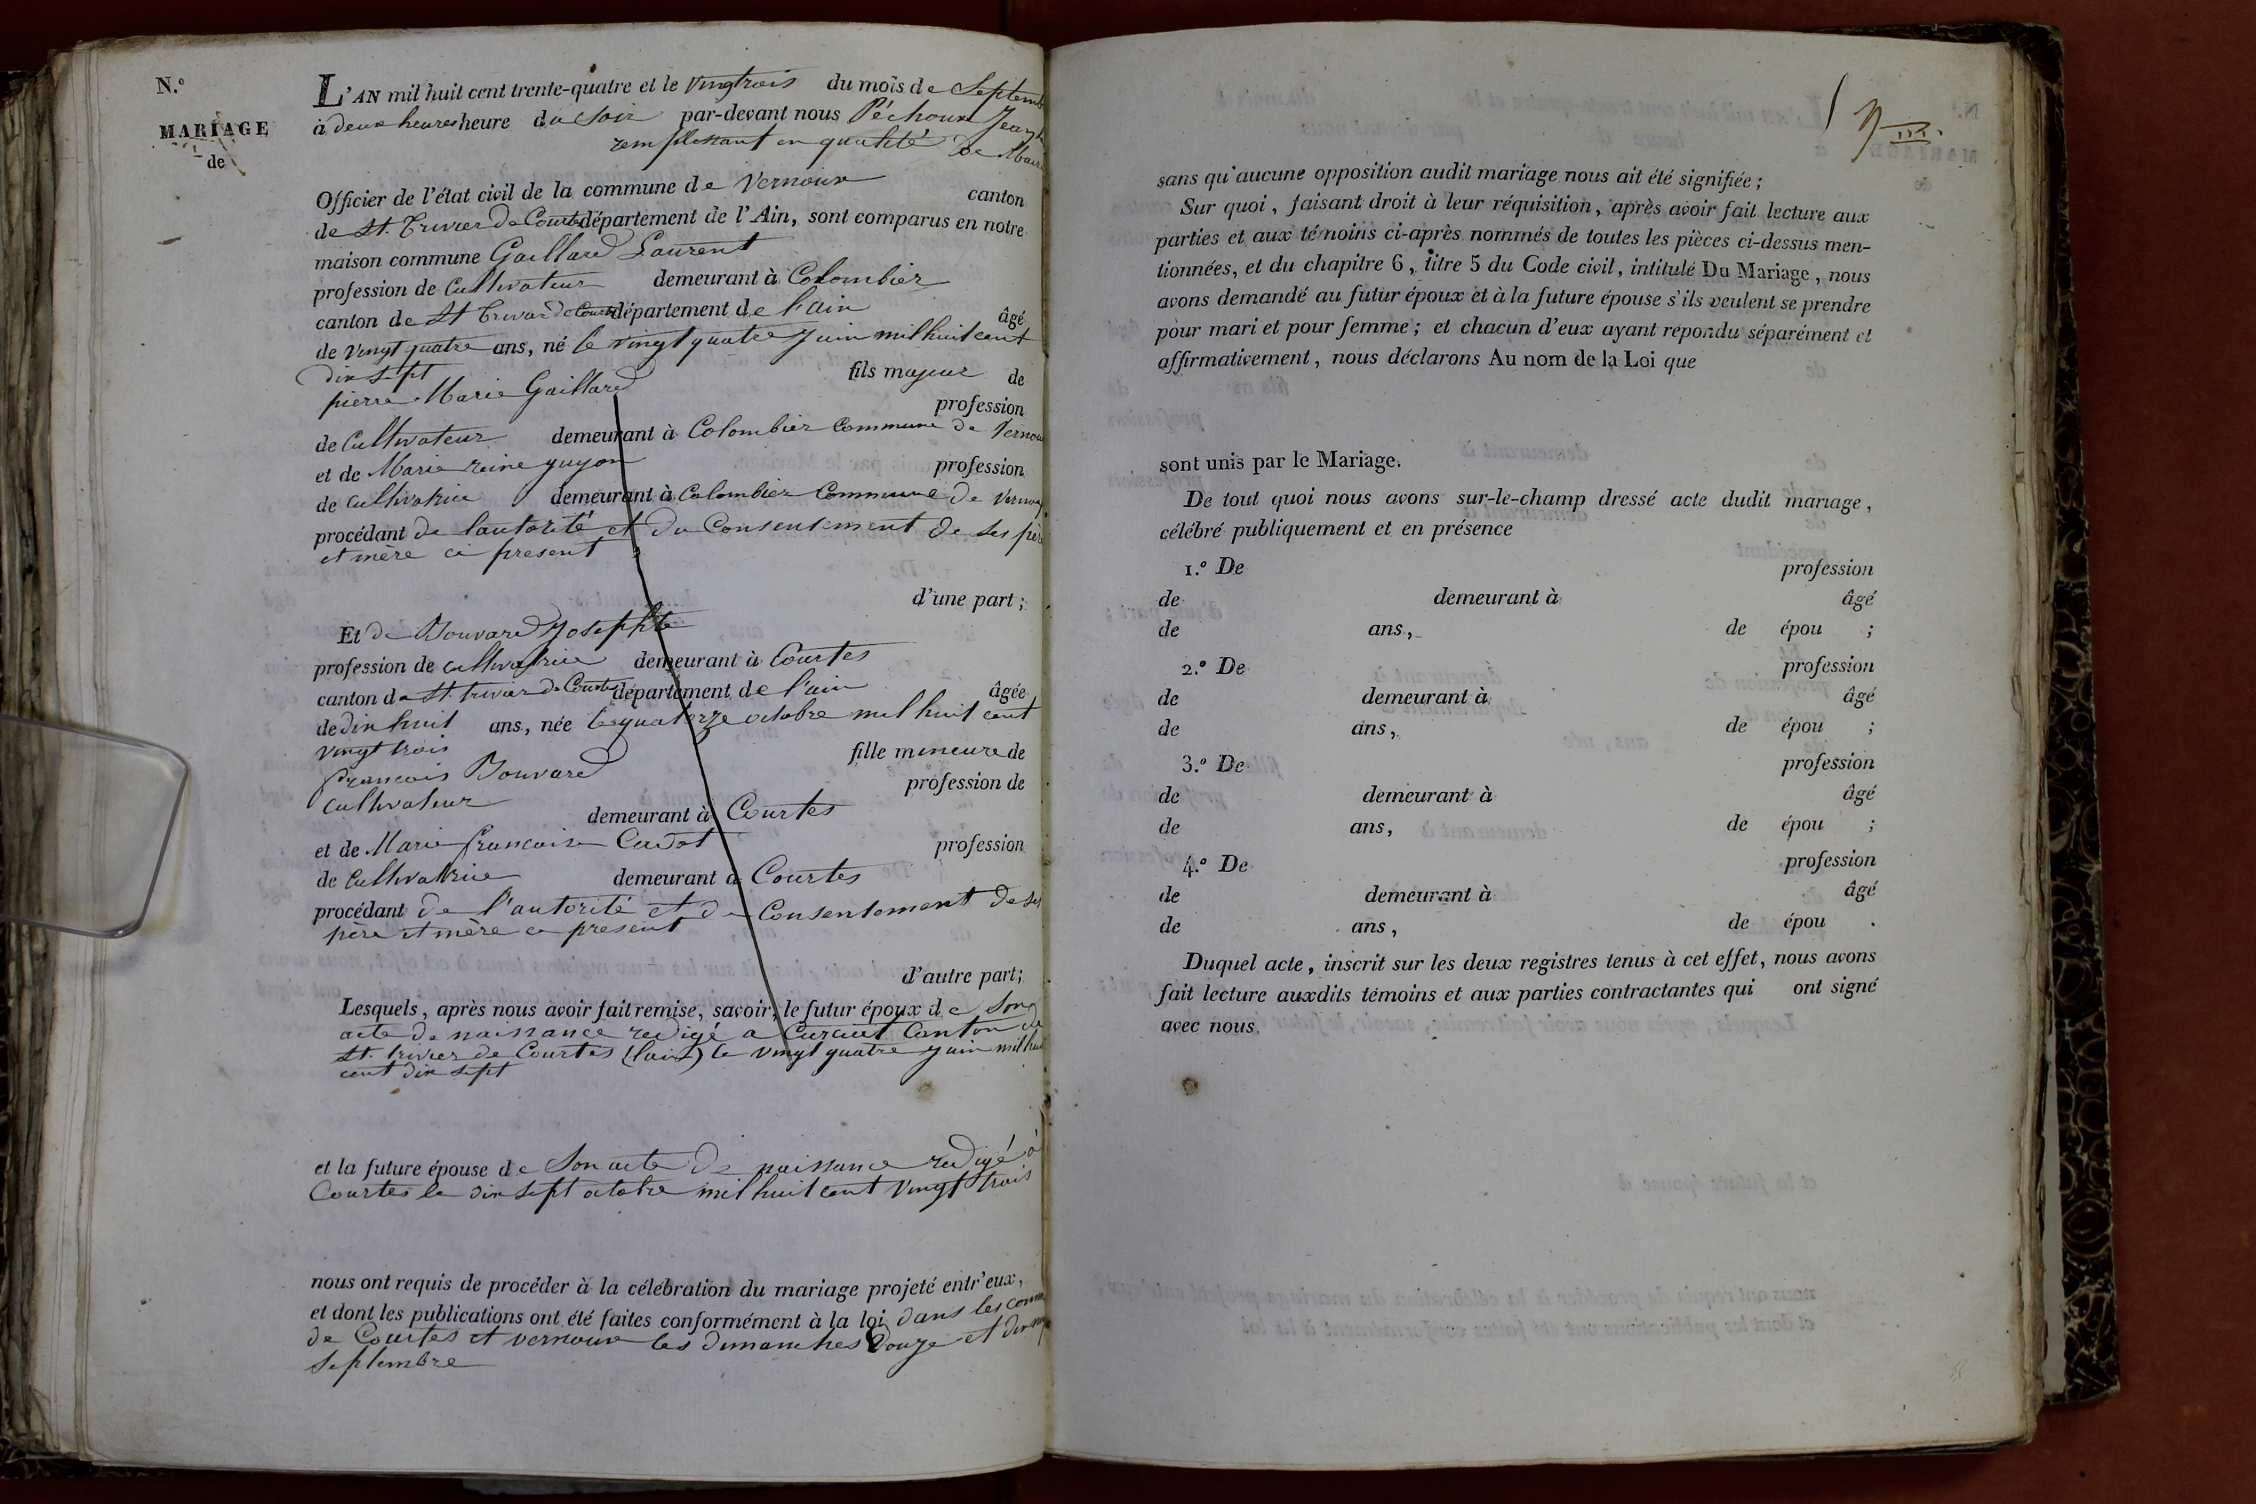 N.o
MARIAGE
de
L'AN mil huit cent trente-quatre et le vingtrois du mois de Septemb
à deux heures heure du soir par-devant nous Péchoux Jean
remplissant en qualité de Maire
Officier de l'état civil de la commune de Vernoux canton
de St. Trivier de Courtes département de l'Ain, sont comparus en notre
maison commune Gaillard Laurent
profession de Cultivateur demeurant à Colombier
canton de St Trivier de Courtes département de l'ain âgé
de vingt quatre ans, né le vingt quatre juin mil huit cent
dix sept fils majeur de
pierre Marie Gaillard profession
de Cultivateur demeurant à Colombier Commune de Vernou
et de Marie reine guyon profession
de cultivatrice demeurant à Colombier Commune de Vernou
procédant de l'autorité et du Consentement de ses père
et mère ci present
d'une part ;
Et de Bouvard Josephte
profession de cultivatrice demeurant à Courtes
canton de St trivier de Courtes département de l'ain âgée
de dix huit ans, née le quatorze octobre mil huit cent
vingt trois fille mineure de
françois Bouvard profession de
cultivateur demeurant à Courtes
et de Marie françoise Cadot profession
de Cultivatrice demeurant à Courtes
procédant de l'autorité et du Consentement de ses
père et mère ci present
d'autre part ;
Lesquels, après nous avoir fait remise, savoir, le futur époux de son
acte de naissance redigé a Curciat Canton de
St. trivier de Courtes (l'ain) le vingt quatre juin mil huit
cent dix sept
et la future épouse de son acte de naissance redigé à
Courtes le dix sept octobre mil huit cent vingt trois
nous ont requis de procéder à la célébration du mariage projeté entr'eux,
et dont les publications ont été faites conformément à la loi dans les comm
de Courtes et vernoux les dimanches douze et dix neuf
septembre
sans qu'aucune opposition audit mariage nous ait été signifiée ;
Sur quoi, faisant droit à leur réquisition, après avoir fait lecture aux
parties et aux témoins ci-après nommés de toutes les pièces ci-dessus men-
tionnées, et du chapitre 6, titre 5 du Code civil, intitulé Du Mariage, nous
avons demandé au futur époux et à la future épouse s'ils veulent se prendre
pour mari et pour femme ; et chacun d'eux ayant repondu séparément et
affirmativement, nous déclarons Au nom de la Loi que
sont unis par le Mariage.
De tout quoi nous avons sur-le-champ dressé acte dudit mariage,
célébré publiquement et en présence
1.o De profession
de demeurant à âgé
de ans, de épou ;
2.o De profession
de demeurant à âgé
de ans, de épou ;
3.o De profession
de demeurant à âgé
de ans, de épou ;
4.o De profession
de demeurant à âgé
de ans, de épou .
Duquel acte, inscrit sur les deux registres tenus à cet effet, nous avons
fait lecture auxdits témoins et aux parties contractantes qui ont signé
avec nous.